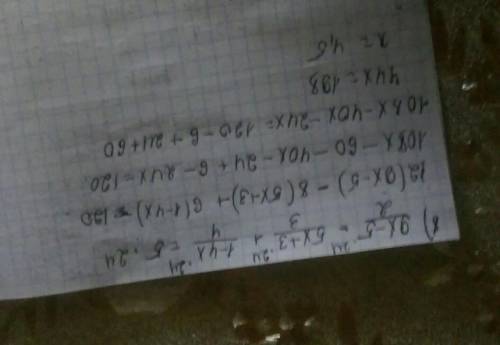 8) 9x-5/2 ·24 - 5x+3/3 ·24 + 1-4x/4 ·24 = 5 · 24
12(9x-5) - 8(5x+3)+6(1-4x) = 120
108x - 60 - 40x - 24 + 6 - 24x = 120
108x - 40x - 24x = 120 - 6 + 24 + 60
44x = 198
x = 4,5